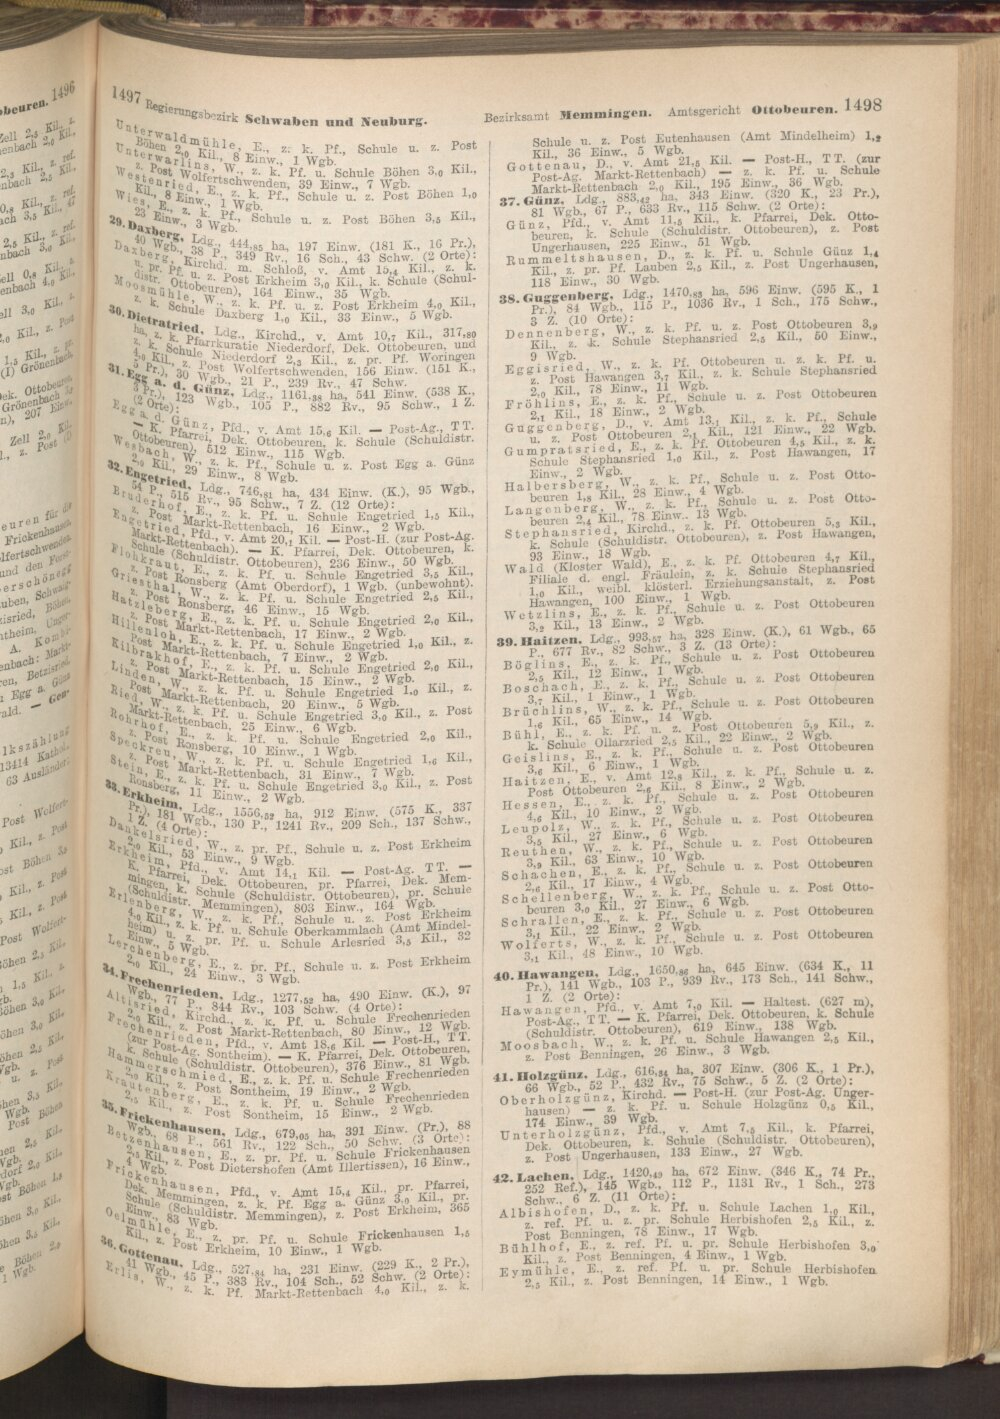 1497 Regierungsbezirk Schwaben und Neuburg.
Unterwaldmühle, E., z. k. Pf., Schule u. z. Post
Böhen 2,0 Kil., 8 Einw., 1 Wgb.
Unterwarlins, W., z. k. Pf. u. Schule Böhen 3,0 Kil.,
z. Post Wolfertschwenden, 39 Einw., 7 Wgb.
Westenried, E., z. k. Pf., Schule u. z. Post Böhen 1,0
Kil., 8 Einw., 1 Wgb.
Wies, E., z. k. Pf., Schule u. z. Post Böhen 3,5 Kil.,
23 Einw., 3 Wgb.
29. Daxberg, Ldg., 444,85 ha, 197 Einw. (181 K., 16 Pr.),
40 Wgb., 38 P., 349 Rv., 16 Sch., 43 Schw. (2 Orte):
Daxberg, Kirchd. m. Schloß, v. Amt 15,4 Kil., z. k.
u. pr. Pf. u. z. Post Erkheim 3,0 Kil., k. Schule (Schul-
distr. Ottobeuren), 164 Einw., 35 Wgb.
Moosmühle, W., z. k. Pf. u. z. Post Erkheim 4,0 Kil.,
z. k. Schule Daxberg 1,0 Kil., 33 Einw., 5 Wgb.
30. Dietratried, Ldg., Kirchd., v. Amt 10,7 Kil., 317,80
ha, z. k. Pfarrkuratie Niederdorf, Dek. Ottobeuren, und
z. k. Schule Niederdorf 2,3 Kil., z. pr. Pf. Woringen
4,0 Kil., z. Post Wolfertschwenden, 156 Einw. (151 K.,
5 Pr.), 30 Wgb., 21 P., 239 Rv., 47 Schw.
31. Egg a. d. Günz, Ldg., 1161,38 ha, 541 Einw. (538 K.,
3 Pr.), 123 Wgb., 105 P., 882 Rv., 95 Schw., 1 Z.
(2 Orte):
Egg a. d. Günz, Pfd., v. Amt 15,6 Kil. — Post-Ag., TT.
— K. Pfarrei, Dek. Ottobeuren, k. Schule (Schuldistr.
Ottobeuren), 512 Einw., 115 Wgb.
Wesbach, W., z. k. Pf., Schule u. z. Post Egg a. Günz
2,0 Kil., 29 Einw., 8 Wgb.
32. Engetried, Ldg., 746,81 ha, 434 Einw. (K.), 95 Wgb.,
54 P., 515 Rv., 95 Schw., 7 Z. (12 Orte):
Bruderhof, E., z. k. Pf. u. Schule Engetried 1,5 Kil.,
z. Post Markt-Rettenbach, 16 Einw., 2 Wgb.
Engetried, Pfd., v. Amt 20,1 Kil. — Post-H. (zur Post-Ag.
Markt-Rettenbach). — K. Pfarrei, Dek. Ottobeuren, k.
Schule (Schuldistr. Ottobeuren), 236 Einw., 50 Wgb.
Flohkraut, E., z. k. Pf. u. Schule Engetried 3,5 Kil.,
z. Post Ronsberg (Amt Oberdorf), 1 Wgb. (unbewohnt).
Griesthal, W., z. k. Pf. u. Schule Engetried 2,5 Kil.,
z. Post Ronsberg, 46 Einw., 15 Wgb.
Hatzleberg, E., z. k. Pf. u. Schule Engetried
z. Post Markt-Rettenbach, 17 Einw., 2 Wgb.
Hillenloh, E., z. k. Pf. u. Schule Engetried 1,0 Kil., z.
Post Markt-Rettenbach, 7 Einw., 2 Wgb.
Kilbrakhof, E., z. k. Pf. u. Schule Engetried 2,0 Kil.,
z. Post Markt-Rettenbach, 15 Einw., 2 Wgb.
Linden, W., z. k. Pf. u. Schule Engetried 1,0 Kil., z.
Post Markt-Rettenbach, 20 Einw., 5 Wgb.
Ried, W., z. k. Pf. u. Schule Engetried 3,0 Kil., z. Post
Markt-Rettenbach, 25 Einw., 6 Wgb.
Rohrhof, E., z. k. Pf. u. Schule Engetried 2,0 Kil.,
z. Post Ronsberg, 10 Einw., 1 Wgb.
Speckreu, W., z. k. Pf. u. Schule Engetried 1,6 Kil.,
z. Post Markt-Rettenbach, 31 Einw., 7 Wgb.
Stein, E., z. k. Pf. u. Schule Engetried 3,0 Kil., z. Post
Ronsberg, 11 Einw., 2 Wgb.
33. Erkheim, Ldg., 1556,52 ha, 912 Einw. (575 K., 337
Pr.), 181 Wgb., 130 P., 1241 Rv., 209 Sch., 137 Schw.,
1 Z. (4 Orte):
Dankelsried, W., z. pr. Pf., Schule u. z. Post Erkheim
2,0 Kil., 53 Einw., 9 Wgb.
Erkheim, Pfd., v. Amt 14,1 Kil. — Post-Ag. TT. —
K. Pfarrei, Dek. Ottobeuren, pr. Pfarrei, Dek. Mem-
mingen, k. Schule (Schuldistr. Ottobeuren), pr. Schule
(Schuldistr. Memmingen), 803 Einw., 164 Wgb.
Erlenberg, W., z. k. Pf., Schule u. z. Post Erkheim
4,0 Kil., z. k. Pf. u. Schule Oberkammlach (Amt Mindel-
heim) u. z. pr. Pf. u. Schule Arlesried 3,5 Kil., 32
Einw., 5 Wgb.
Lerchenberg, E., z. pr. Pf., Schule u. z. Post Erkheim
2,0 Kil., 24 Einw., 3 Wgb.
34. Frechenrieden, Ldg., 1277,52 ha, 490 Einw. (K.), 97
Wgb., 77 P., 844 Rv., 103 Schw. (4 Orte):
Altisried, Kirchd., z. k. Pf. u. Schule Frechenrieden
2,0 Kil., z. Post Markt-Rettenbach, 80 Einw., 12 Wgb.
Frechenrieden, Pfd., v. Amt 18,6 Kil. — Post-H., TT.
(zur Post-Ag. Sontheim). — K. Pfarrei, Dek. Ottobeuren,
k. Schule (Schuldistr. Ottobeuren), 376 Einw., 81 Wgb.
Hammerschmied, E., z. k. Pf. u. Schule Frechenrieden
2,0 Kil., z. Post Sontheim, 19 Einw., 2 Wgb.
Krautenberg, E., z. k. Pf. u. Schule Frechenrieden
2,5 Kil., z. Post Sontheim, 15 Einw., 2 Wgb.
35. Frickenhausen, Ldg., 679,05 ha, 391 Einw. (Pr.), 88
Wgb., 68 P., 561 Rv., 122 Sch., 50 Schw. (3 Orte):
Betzenhausen, E., z. pr. Pf. u. Schule Frickenhausen
2,5 Kil., z. Post Dietershofen (Amt Illertissen), 16 Einw.,
4 Wgb.
Frickenhausen, Pfd., v. Amt 15,4 Kil., pr. Pfarrei,
Dek. Memmingen, z. k. Pf. Egg a. Günz 3,0 Kil., pr.
Schule (Schuldistr. Memmingen), z. Post Erkheim, 365
Einw., 83 Wgb.
Oelmühle, E., z. pr. Pf. u. Schule Frickenhausen 1,5
Kil., z. Post Erkheim, 10 Einw., 1 Wgb.
36. Gottenau, Ldg., 527,84 ha, 231 Einw. (229 K., 2 Pr.),
41 Wgb., 45 P., 383 Rv., 104 Sch., 52 Schw. (2 Orte):
Erlis, W., z. k. Pf. Markt-Rettenbach 4,0 Kil., z. k.
Bezirksamt Memmingen. Amtsgericht Ottobeuren. 1498
Schule u. z. Post Eutenhausen (Amt Mindelheim) 1,2
Kil., 36 Einw., 5 Wgb.
Gottenau, D., v. Amt 21,5 Kil. — Post-H., TT. (zur
Post-Ag. Markt-Rettenbach) — z. k. Pf. u. Schule
Markt-Rettenbach 2,0 Kil., 195 Einw., 36 Wgb.
37. Günz, Ldg., 883,42 ha, 343 Einw. (320 K., 23 Pr.),
81 Wgb., 67 P., 633 Rv., 115 Schw. (2 Orte):
Günz, Pfd., v. Amt 11,5 Kil., k. Pfarrei, Dek. Otto-
beuren, k. Schule (Schuldistr. Ottobeuren), z. Post
Ungerhausen, 225 Einw., 51 Wgb.
Rummeltshausen, D., z. k. Pf. u. Schule Günz 1,4
Kil., z. pr. Pf. Lauben 2,5 Kil., z. Post Ungerhausen,
118 Einw., 30 Wgb.
38. Guggenberg, Ldg., 1470,83 ha, 596 Einw. (595 K., 1
Pr.), 84 Wgb., 115 P., 1036 Rv., 1 Sch., 175 Schw.,
3 Z. (10 Orte):
Dennenberg, W., z. k. Pf. u. z. Post Ottobeuren 3,9
Kil., z. k. Schule Stephansried 2,5 Kil., 50 Einw.,
9 Wgb.
Eggisried, W., z. k. Pf. Ottobeuren u. z. k. Pf. u.
z. Post Hawangen 3,7 Kil., z. k. Schule Stephansried
2,0 Kil., 78 Einw., 11 Wgb.
Fröhlins, E., z. k. Pf., Schule u. z. Post Ottobeuren
2,1 Kil., 18 Einw., 2 Wgb.
Guggenberg, D., v. Amt 13,1 Kil., z. k. Pf., Schule
u. z. Post Ottobeuren 2,1 Kil., 121 Einw., 22 Wgb.
Gumpratsried, E., z. k. Pf. Ottobeuren 4,5 Kil., z. k.
Schule Stephansried 1,0 Kil., z. Post Hawangen, 17
Einw., 2 Wgb.
Halbersberg, W., z. k. Pf., Schule u. z. Post Otto-
beuren 1,8 Kil., 28 Einw., 4 Wgb.
Langenberg, W., z. k. Pf., Schule u. z. Post Otto-
beuren 2,4 Kil., 78 Einw., 13 Wgb.
Stephansried, Kirchd., z. k. Pf. Ottobeuren 5,3 Kil.,
k. Schule (Schuldistr. Ottobeuren), z. Post Hawangen,
93 Einw., 18 Wgb.
Wald (Kloster Wald), E., z. k. Pf. Ottobeuren 4,7 Kil.,
Filiale d. engl. Fräulein, z. k. Schule Stephansried
1,0 Kil., weibl. klösterl. Erziehungsanstalt, z. Post
Hawangen, 100 Einw., 1 Wgb.
Wetzlins, E., z. k. Pf., Schule u. z. Post Ottobeuren
3,2 Kil., 13 Einw., 2 Wgb.
39. Haitzen, Ldg., 993,57 ha, 328 Einw. (K.), 61 Wgb., 65
P., 677 Rv., 82 Schw., 3 Z. (13 Orte):
Böglins, E., z. k. Pf., Schule u. z. Post Ottobeuren
2,5 Kil., 12 Einw., 1 Wgb.
Boschach, E., z. k. Pf., Schule u. z. Post Ottobeuren
3,7 Kil., 1 Einw., 1 Wgb.
Brüchlins, W., z. k. Pf., Schule u. z. Post Ottobeuren
1,6 Kil., 65 Einw., 14 Wgb.
Bühl, E., z. k. Pf. u. z. Post Ottobeuren 5,9 Kil., z.
k. Schule Ollarzried 2,5 Kil., 22 Einw., 2 Wgb.
Geislins, E., z. k. Pf., Schule u. z. Post Ottobeuren
3,6 Kil., 6 Einw., 1 Wgb.
Haitzen, E., v. Amt 12,8 Kil., z. k. Pf., Schule u. z.
Post Ottobeuren 2,6 Kil., 8 Einw., 2 Wgb.
Hessen, E., z. k. Pf., Schule u. z. Post Ottobeuren
4,6 Kil., 10 Einw., 2 Wgb.
Leupolz, W., z. k. Pf., Schule u. z. Post Ottobeuren
3,5 Kil., 27 Einw., 6 Wgb.
Reuthen, W., z. k. Pf., Schule u. z. Post Ottobeuren
3,9 Kil., 63 Einw., 10 Wgb.
Schachen, E., z. k. Pf., Schule u. z. Post Ottobeuren
2,6 Kil., 17 Einw., 4 Wgb.
Schellenberg, W., z. k. Pf., Schule u. z. Post Otto-
beuren 3,0 Kil., 27 Einw., 6 Wgb.
Schrallen, E., z. k. Pf., Schule u. z. Post Ottobeuren
3,1 Kil., 22 Einw., 2 Wgb.
Wolferts, W., z. k. Pf., Schule u. z. Post Ottobeuren
3,1 Kil., 48 Einw., 10 Wgb.
40. Hawangen, Ldg., 1650,86 ha, 645 Einw. (634 K., 11
Pr.), 141 Wgb., 103 P., 939 Rv., 173 Sch., 141 Schw.,
1 Z. (2 Orte):
Hawangen, Pfd., v. Amt 7,0 Kil. — Haltest. (627 m),
Post-Ag., TT. — K. Pfarrei, Dek. Ottobeuren, k. Schule
(Schuldistr. Ottobeuren), 619 Einw., 138 Wgb.
Moosbach, W., z. k. Pf. u. Schule Hawangen 2,5 Kil.,
z. Post Benningen, 26 Einw., 3 Wgb.
41. Holzgünz, Ldg., 616,34 ha, 307 Einw. (306 K., 1 Pr.),
66 Wgb., 52 P., 432 Rv., 75 Schw., 5 Z. (2 Orte):
Oberholzgünz, Kirchd. — Post-H. (zur Post-Ag. Unger-
hausen) — z. k. Pf. u. Schule Holzgünz 0,5 Kil.,
174 Einw., 39 Wgb.
Unterholzgünz, Pfd., v. Amt 7,5 Kil., k. Pfarrei,
Dek. Ottobeuren, k. Schule (Schuldistr. Ottobeuren),
z. Post Ungerhausen, 133 Einw., 27 Wgb.
42. Lachen, Ldg., 1420,49 ha, 672 Einw. (346 K., 74 Pr.,
252 Ref.), 145 Wgb., 112 P., 1131 Rv., 1 Sch., 273
Schw., 6 Z. (11 Orte):
Albishofen, D., z. k. Pf. u. Schule Lachen 1,0 Kil.,
z. ref. Pf. u. z. pr. Schule Herbishofen 2,5 Kil., z.
Post Benningen, 78 Einw., 17 Wgb.
Bühlhof, E., z. ref. Pf. u. pr. Schule Herbishofen 3,0
Kil., z. Post Benningen, 4 Einw., 1 Wgb.
Eymühle, E., z. ref. Pf. u. pr. Schule Herbishofen
2,5 Kil., z. Post Benningen, 14 Einw., 1 Wgb.